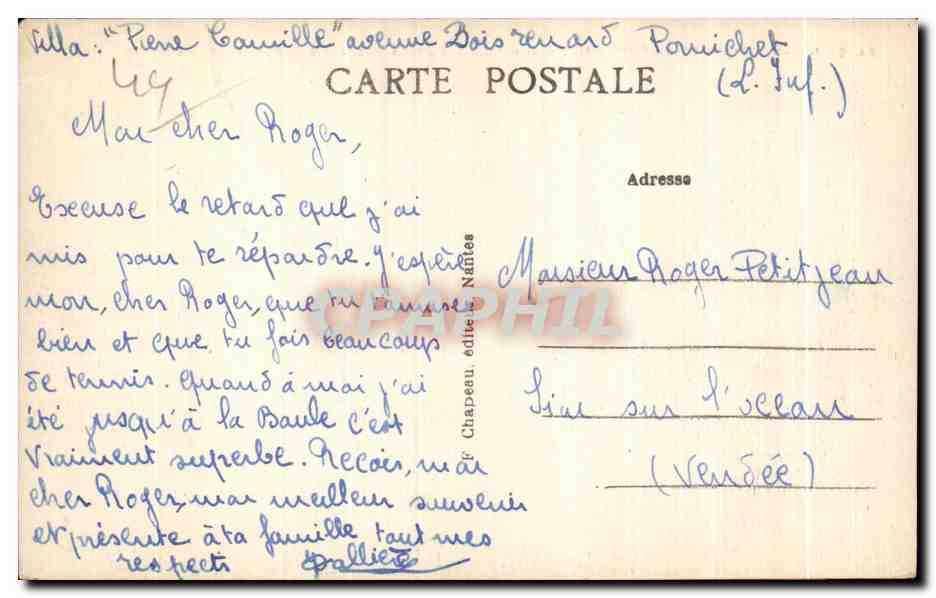 Villa : "Pierre Camille" avenue Bois renard Pornichet
(L. Inf.)
44
CARTE POSTALE
Mon cher Roger,
Adresse
Excuse le retard que j'ai
mis pour te répondre. J'espère
mon, cher Roger, que tu t'amuses
bien et que tu fais beaucoup
de tennis. Quand à moi j'ai
été jusqu'à la Baule c'est
vraiment superbe. Reçois, mon
cher Roger, mon meilleur souvenir
et présente à ta famille tout mes
respects
F Chapeau, éditeur, Nantes
Monsieur Roger Petitjean
Sion sur l'océan
(Vendée)
CPAPHIL